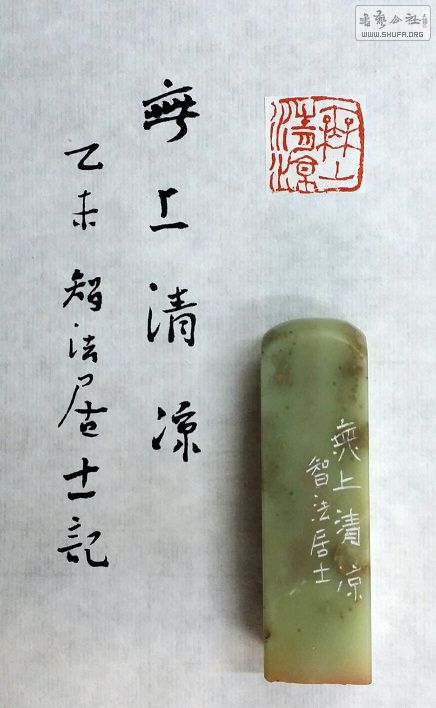 書藝公社
WWW.SHUFA.ORG
無上清涼
無上清凉
乙未 智法居士記
無上清凉
智法居士